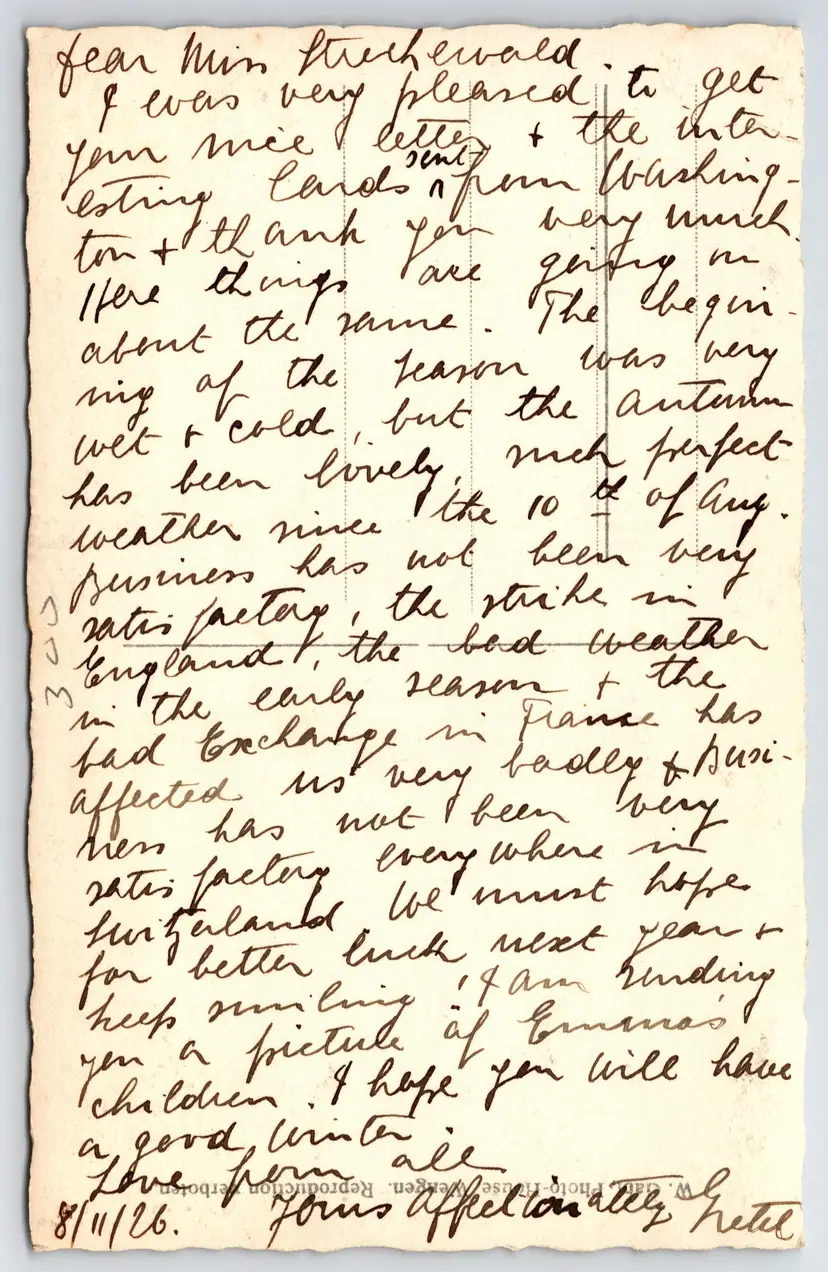 Dear Miss
I was very pleased to get
your nice letter + the inter-
esting Cards sent from Washing-
ton + thank you very much.
Here things are going on
about the same. The begin-
ning of the season was very
wet + cold, but the autumn
has been lovely, such perfect
weather since the 10th of Aug.
Business has not been very
satisfactory, the strike in
England, the bad weather
in the early season + the
bad Exchange in France has
affected us very badly + Busi-
ness has not been very
satisfactory everywhere in
Switzerland. We must hope
for better luck next year +
keep smiling! I am sending
you a picture of Emma's
children. I hope you will have
a good winter.
Love from all
Yours Affectionately Gretel
8/11/26.
W. Gabi, Photo-House, Wengen. Reproduction verboten.
300